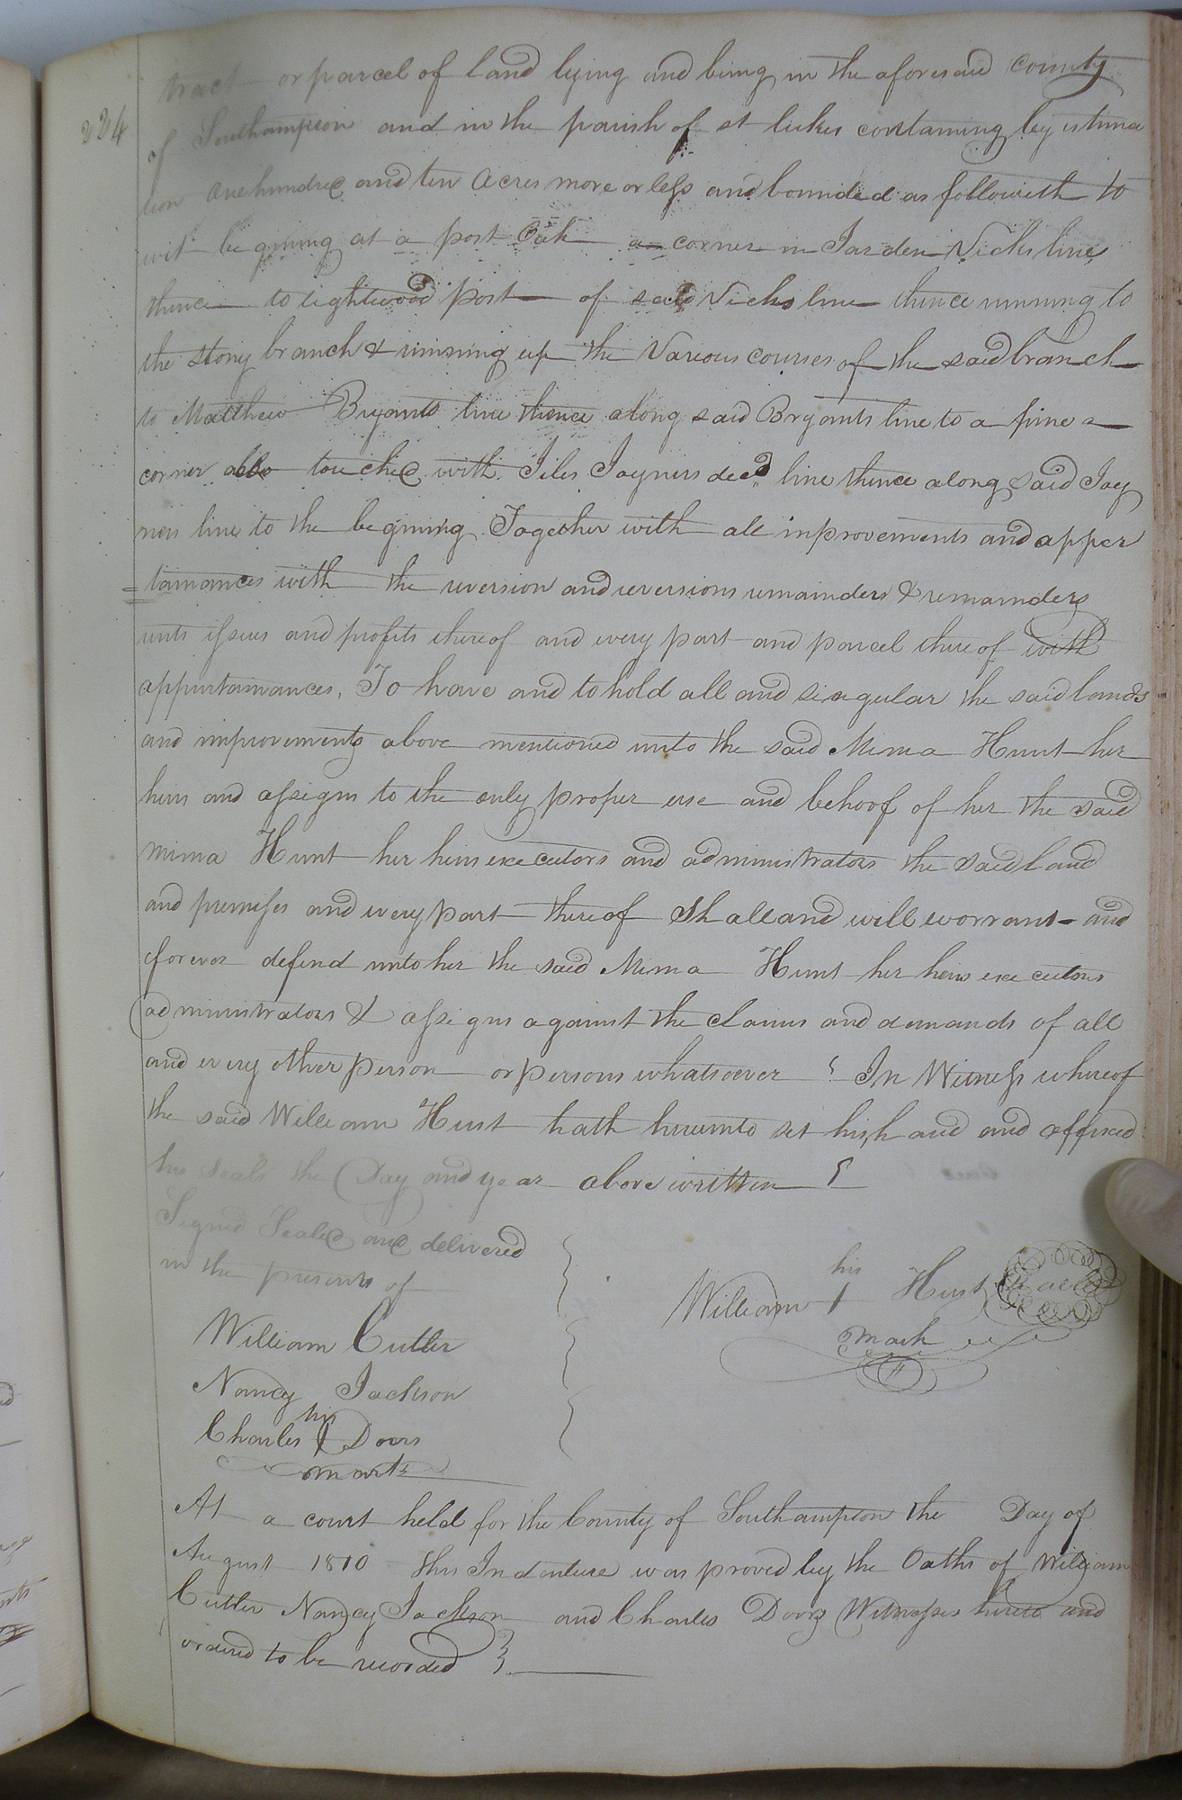 234
tract or parcel of land lying and being in the aforesaid County
of Southampton and in the parish of st lukes containing by istima
tion one hundred and ten Acres more or less and bounded as followith to
wit begining at a post Oak a corner in Jarden Vicks line
thence to lightwood post of said Vicks line thence running to
the stony branch & running up the Various courses of the said branch
to Matthew Bryants line thence along said Bryants line to a pine a
corner also touched with Jiles Joyners decd line thence along said Joy
ners line to the begining Together with all inprovements and apper
=tainances with the reversion and reversions remainders & remainders
rents issues and profits thereof and every part and parcel thereof with
appurtainances, To have and to hold all and singular the said lands
and improvements above mentioned unto the said Mima Hunt her
heirs and assigns to the only proper use and behoof of her the said
mima Hunt her heirs executors and administrators the said land
and premises and every part thereof shall and will warrant and
forever defend unto her the said Mima Hunt her heirs executors
administrators & assigns against the claims and demands of all
and every other person or persons whatsoever In Witness whereof
the said William Hust hath hereunto set his hand and affixed
his seals the Day and year above written
Signed Sealed and delivered
in the presents of
his
William Hust Seal
mark
William Cutler
Nancy Jackson
his
Charles Doors
mark
At a court held for the County of Southampton the Day of
August 1810 this Indenture was proved by the Oaths of William
Cutler Nancy Jackson and Charles Doors Witnesses hereto and
ordered to be recorded